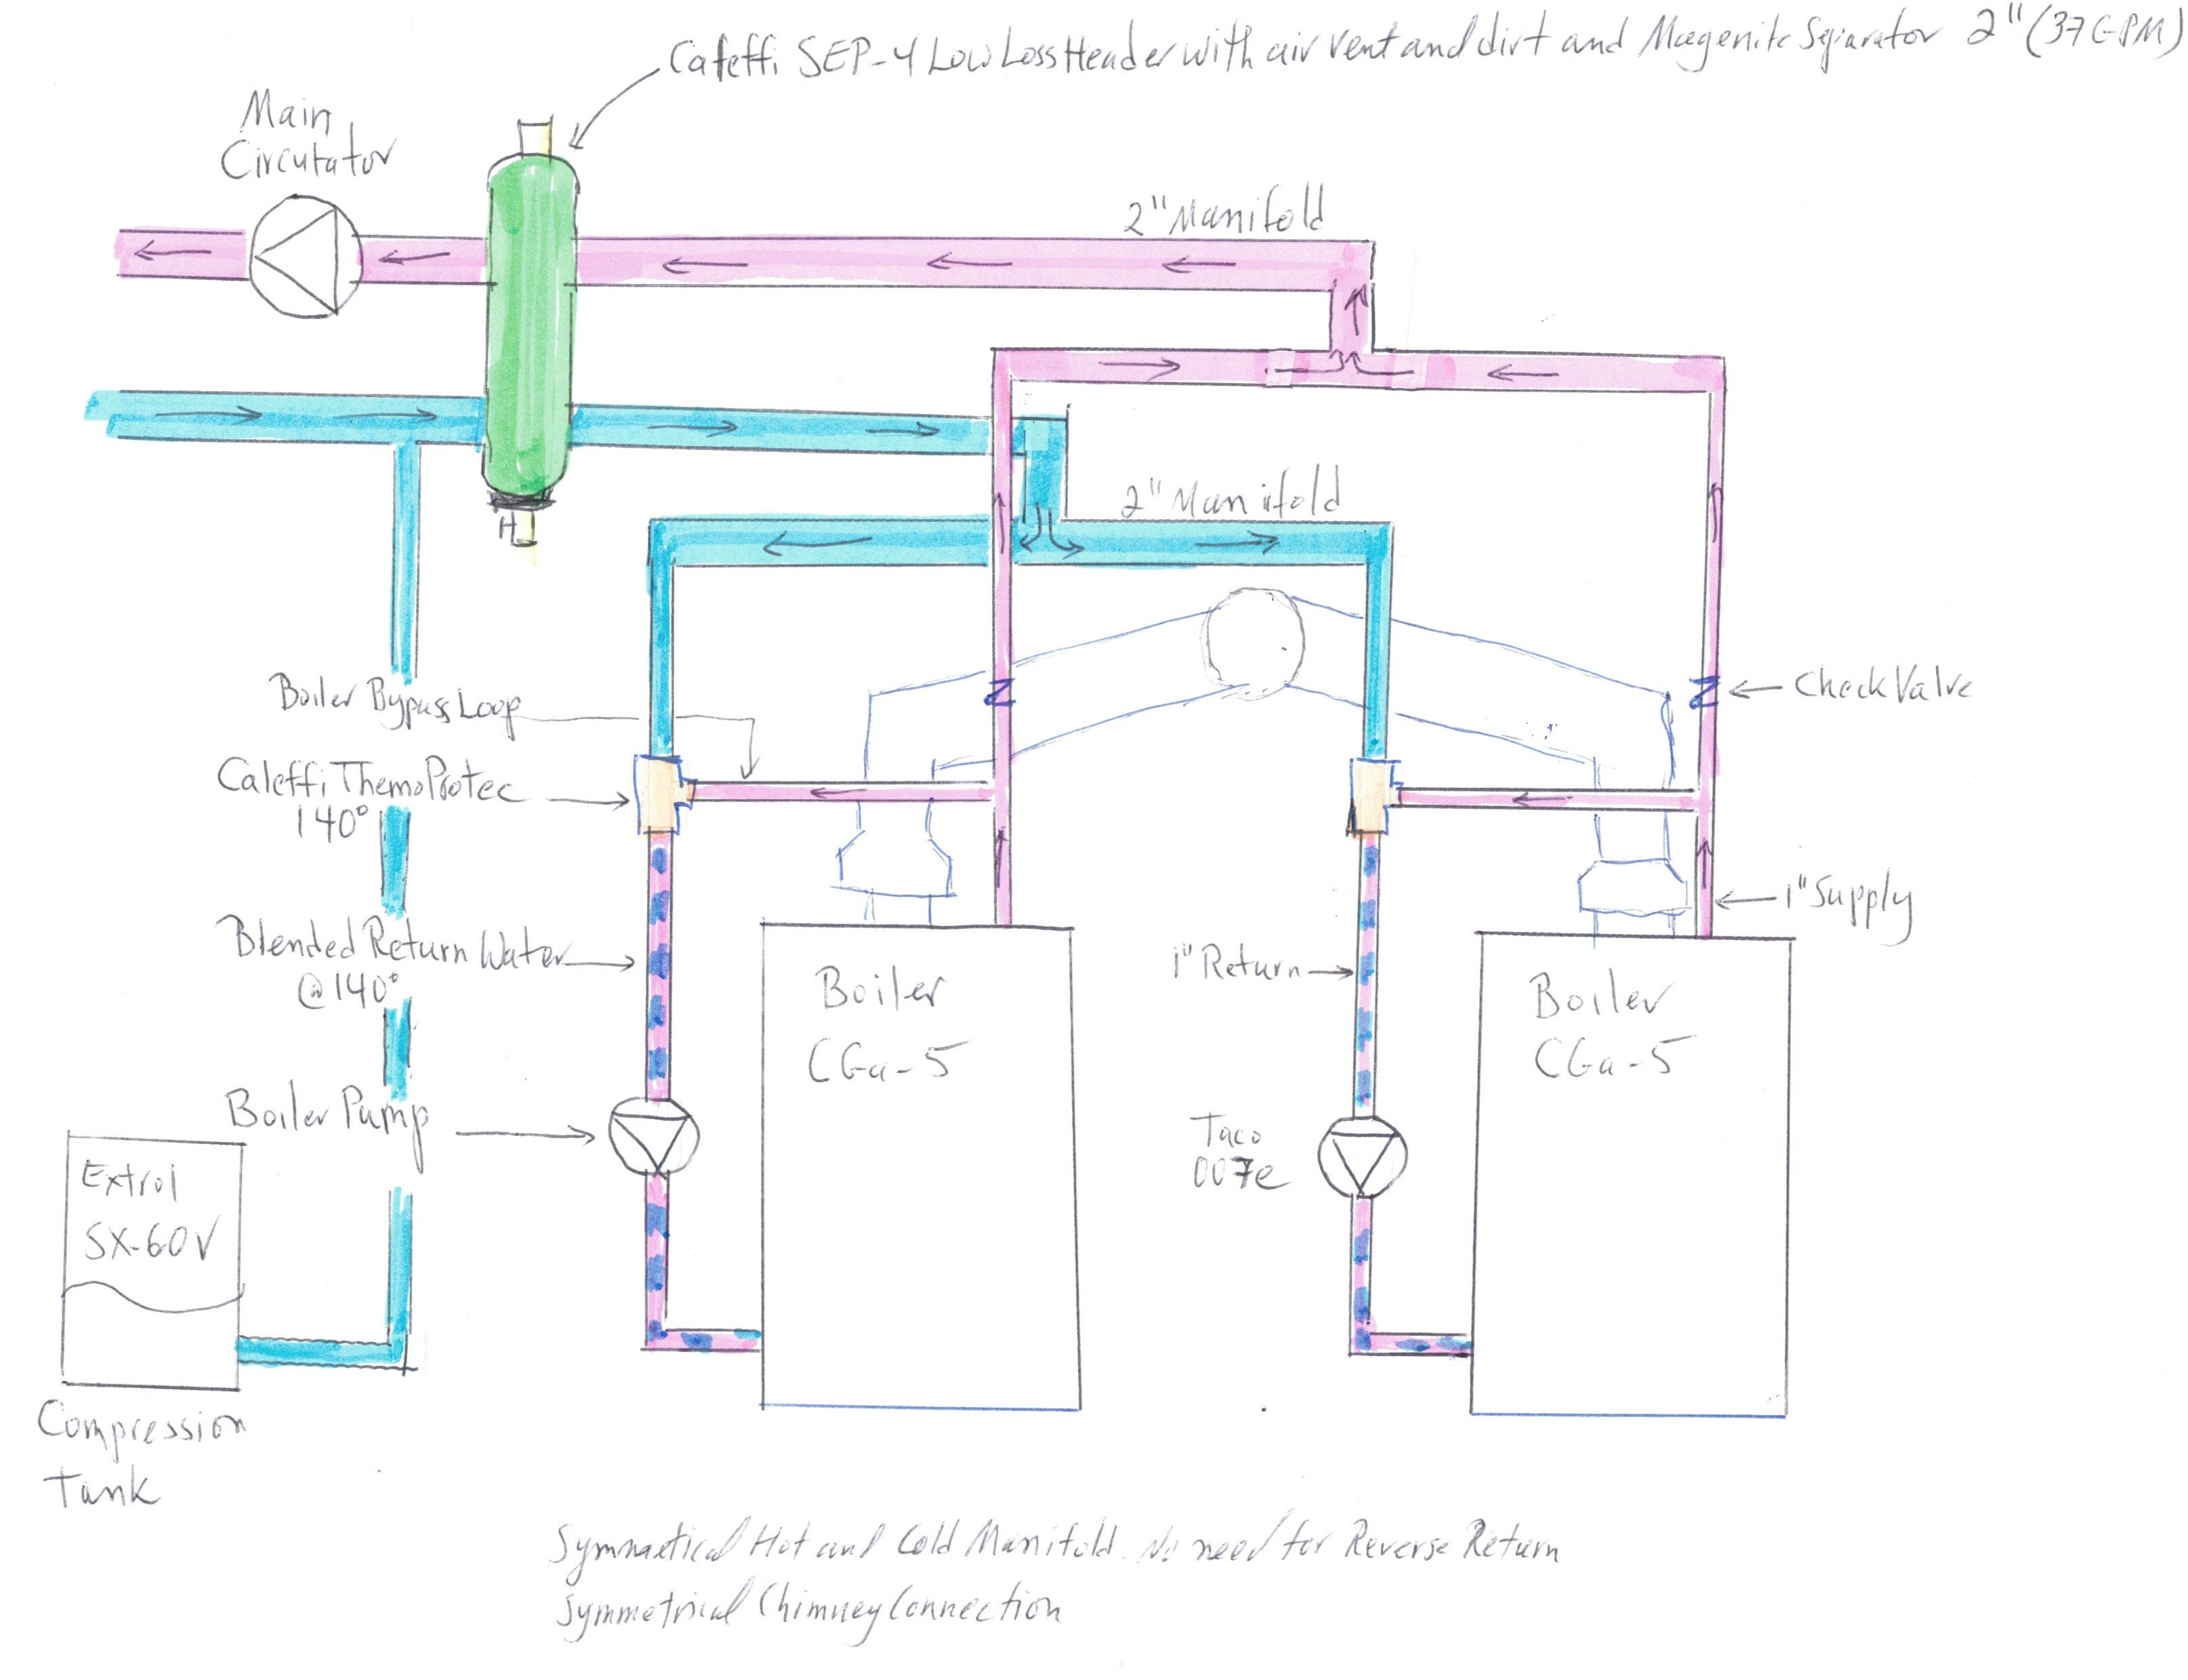 Caleffi SEP-4 Low Loss Header with air vent and dirt and Magenite Separator 2" (37 GPM)
Main
Circulator
2" Manifold
2" Manifold
Boiler Bypass Loop
Check Valve
Caleffi ThemoProtec
140°
1" Supply
Blended Return Water
@140°
1" Return
Boiler
CGa-5
Boiler
CGa-5
Boiler Pump
Taco
007e
Extrol
SX-60V
Compression
Tank
Symmaetical Hot and Cold Manifold. No need for Reverse Return
Symmetrical Chimney Connection